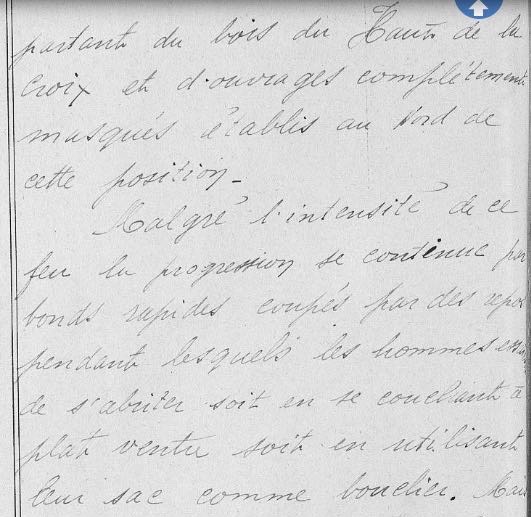 partant du bois du Haut de la
Croix et d'ouvrages complètement
masqués établis au Nord de
cette position.
Malgré l'intensité de ce
feu la progression se continue par
bonds rapides coupés par des repos
pendant lesquels les hommes
de s'abriter soit en se couchant à
plat ventre soit en utilisant
leur sac comme bouclier.